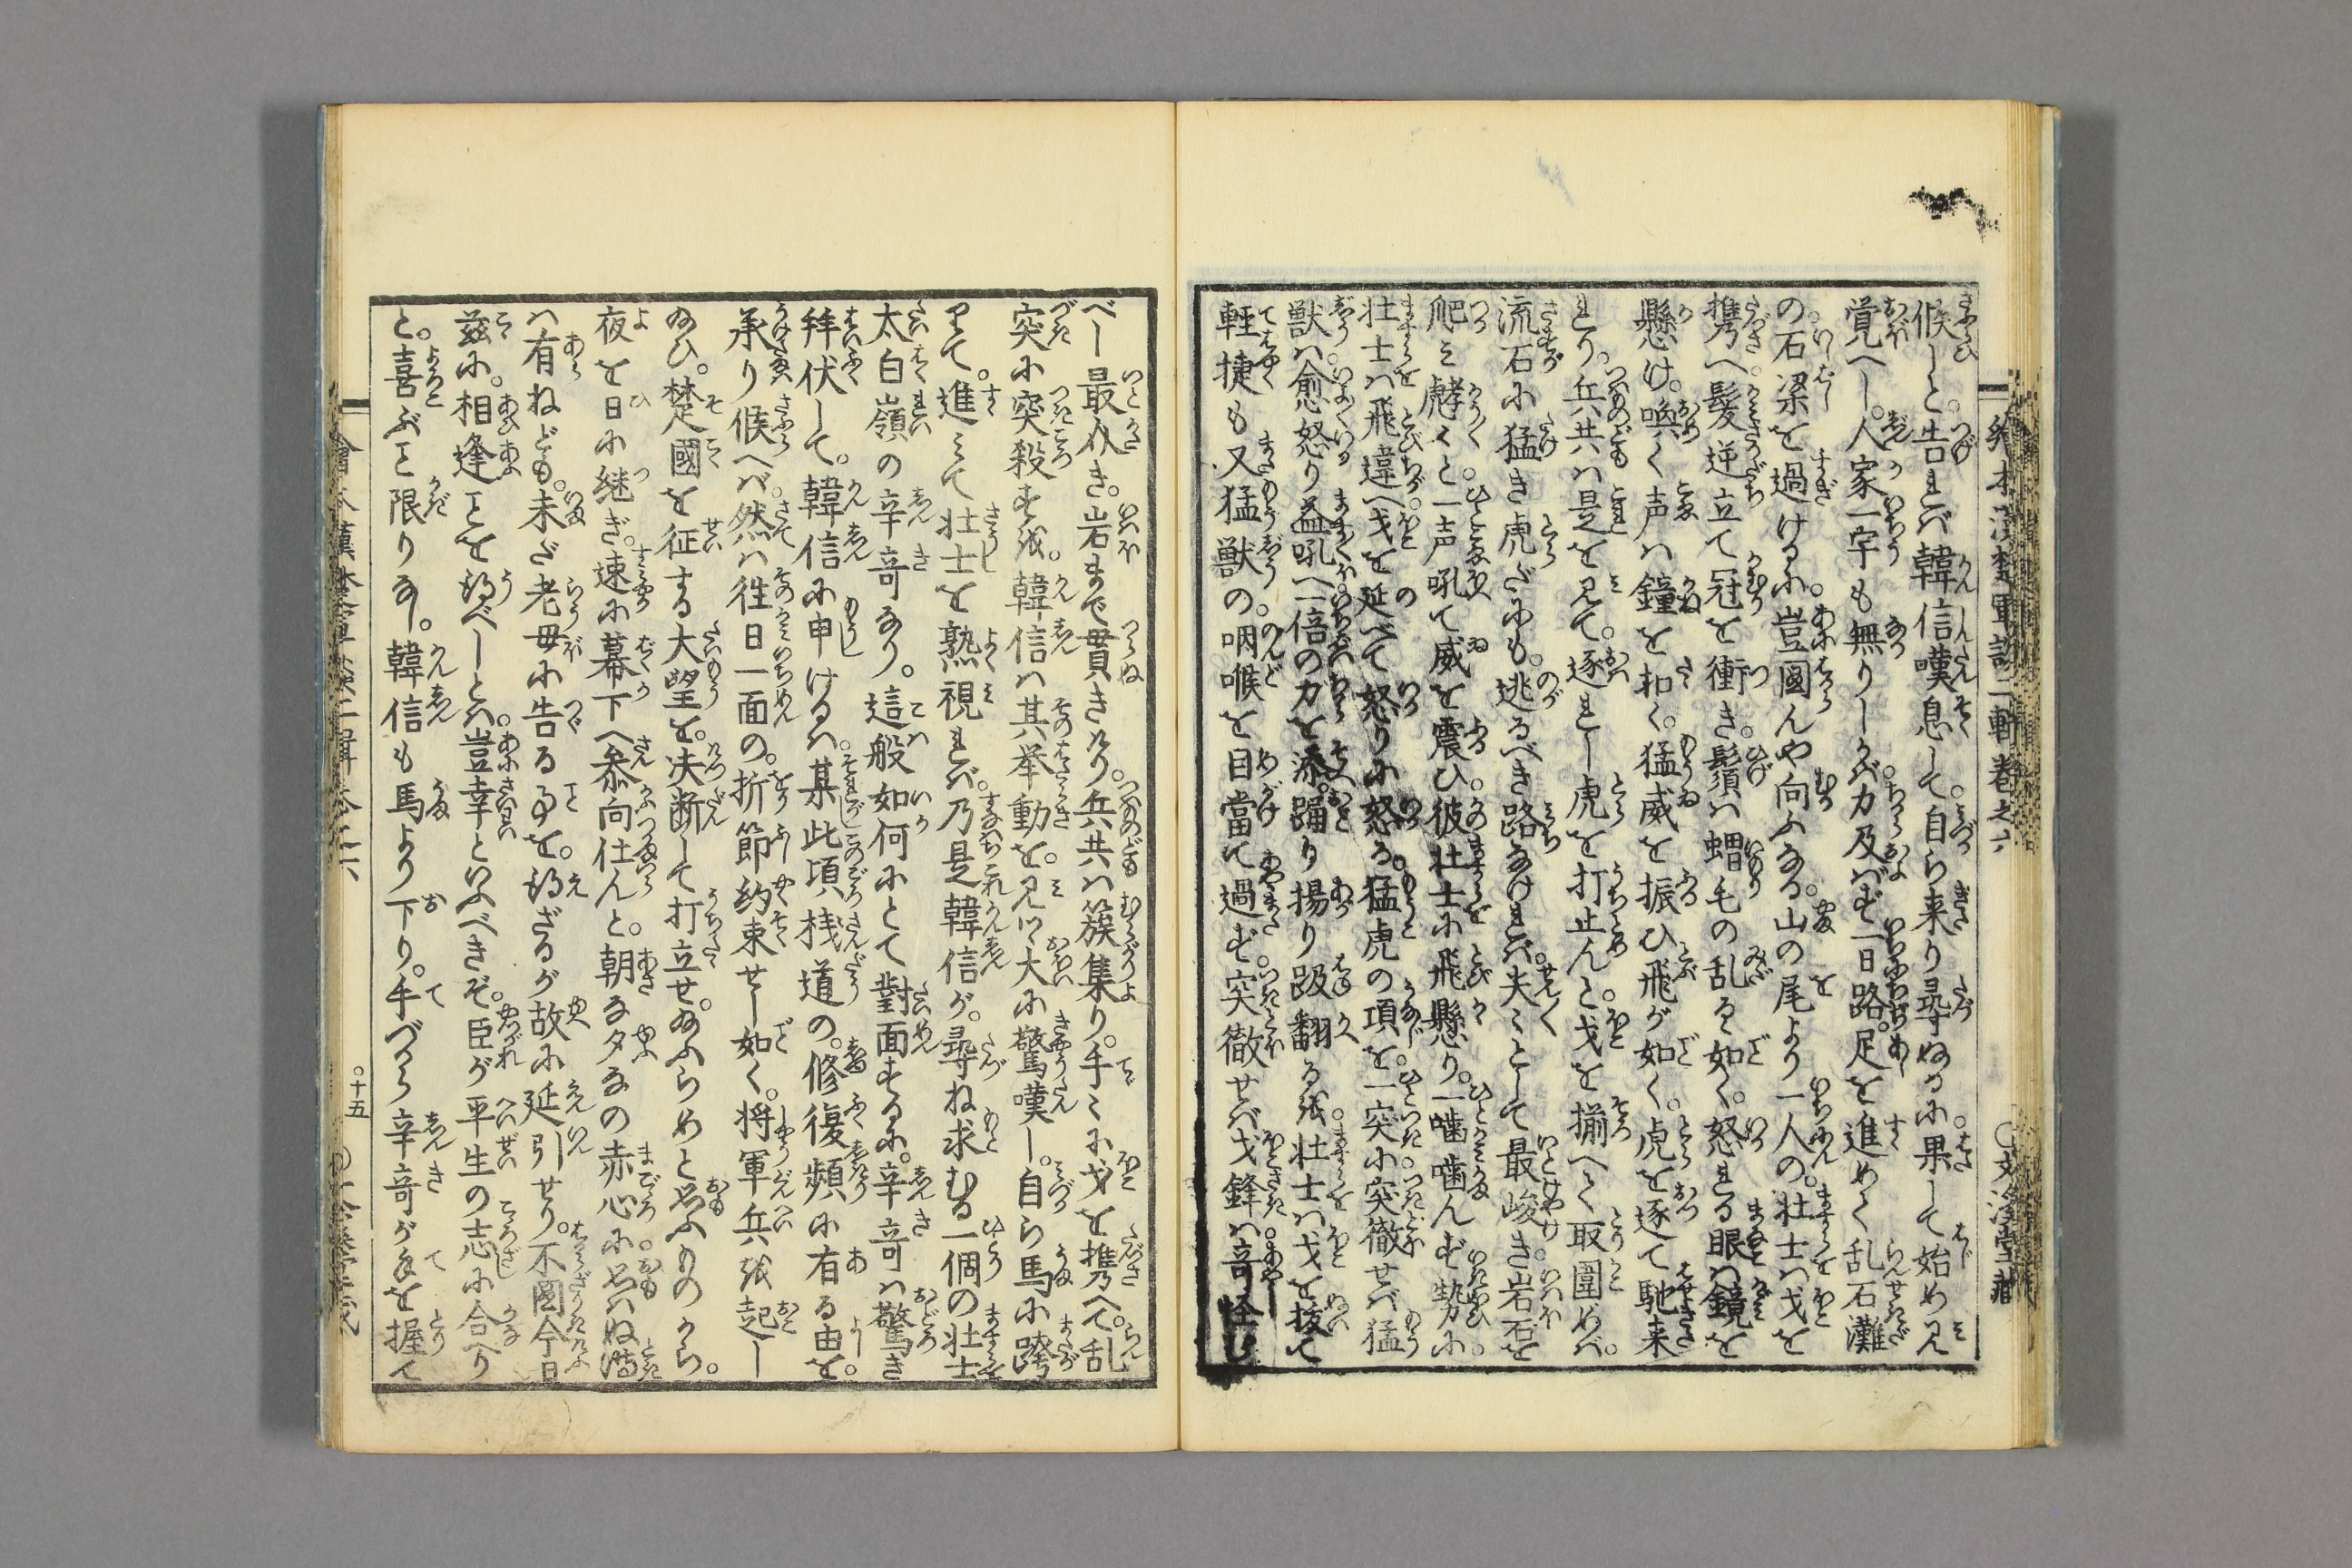 候しと。告れバ韓信嘆息して。自ら来り尋ぬるに。果して始め見
覚へし。人家一宇も無りしかバ。力及バず一日路。足を進めて乱石灘
の石梁を過けるに。豈図んや向ふなる。山の尾より一人の。壮士ハ戈を
携へ。髪逆立て冠を衝き。鬚ハ蝟毛の乱るゝ如く。怒れる眼ハ鏡を
懸け。喚く声ハ鐘を扣く。猛威を振ひ飛が如く。虎を逐て馳来
れり。兵共ハ是を見て。逐れし虎を打止んと。戈を揃へて取囲めバ。
流石に猛き虎だにも。逃るべき路なけれバ。失々として最峻き。岩石を
爬ミ。哮々と一声吼て威を震ひ。彼壮士に飛懸り。一噛噛んず勢に。
壮士ハ飛違へ。戈を延べて怒りに怒る。猛虎の項を。一突に突徹せバ猛
獣ハ。愈怒り益吼へ。一倍の力を添。踊り揚り趿翻るを。壮士ハ戈を抜て
軽捷も又猛獣の。咽喉を目當て過ず。突徹せバ戈鋒ハ。竒怪し
絵本漢楚軍談二輯巻之六
○文渓堂藏
べし最仄き。岩まで貫きけり。兵共ハ簇集り。手々に戈を携へて。乱
突に突殺すを。韓信ハ其挙動を。見て大に驚嘆し。自ら馬に跨
りて。進ミて壮士を熟視れバ。乃是韓信が。尋ね求むる一個の壮士
太白嶺の辛竒なり。這般如何にとて對面するに。辛竒ハ驚き
拜伏して。韓信に申けるハ。某此頃桟道の。修復頻に有る由を。
承り候へバ。然ハ徃日一面の。折節約束せし如く。将軍兵を起し
給ひ。楚國を征する大望を。决断して打立せ。給ふらめと思ふものから。
夜を日に継ぎ。速に幕下へ參向仕んと。朝な夕なの赤心に。思ハぬ時
ハ有ねども。未だ老母に告る事を。得ざるが故に延引せり。不圖今日
茲に。相逢ことを得べしとハ。豈幸といふべきぞ。臣が平生の志に合へり
と。喜ぶこと限りなし。韓信も馬より下り。手づから辛竒が手を握て
繪本漢楚軍談二輯巻之六
○十五